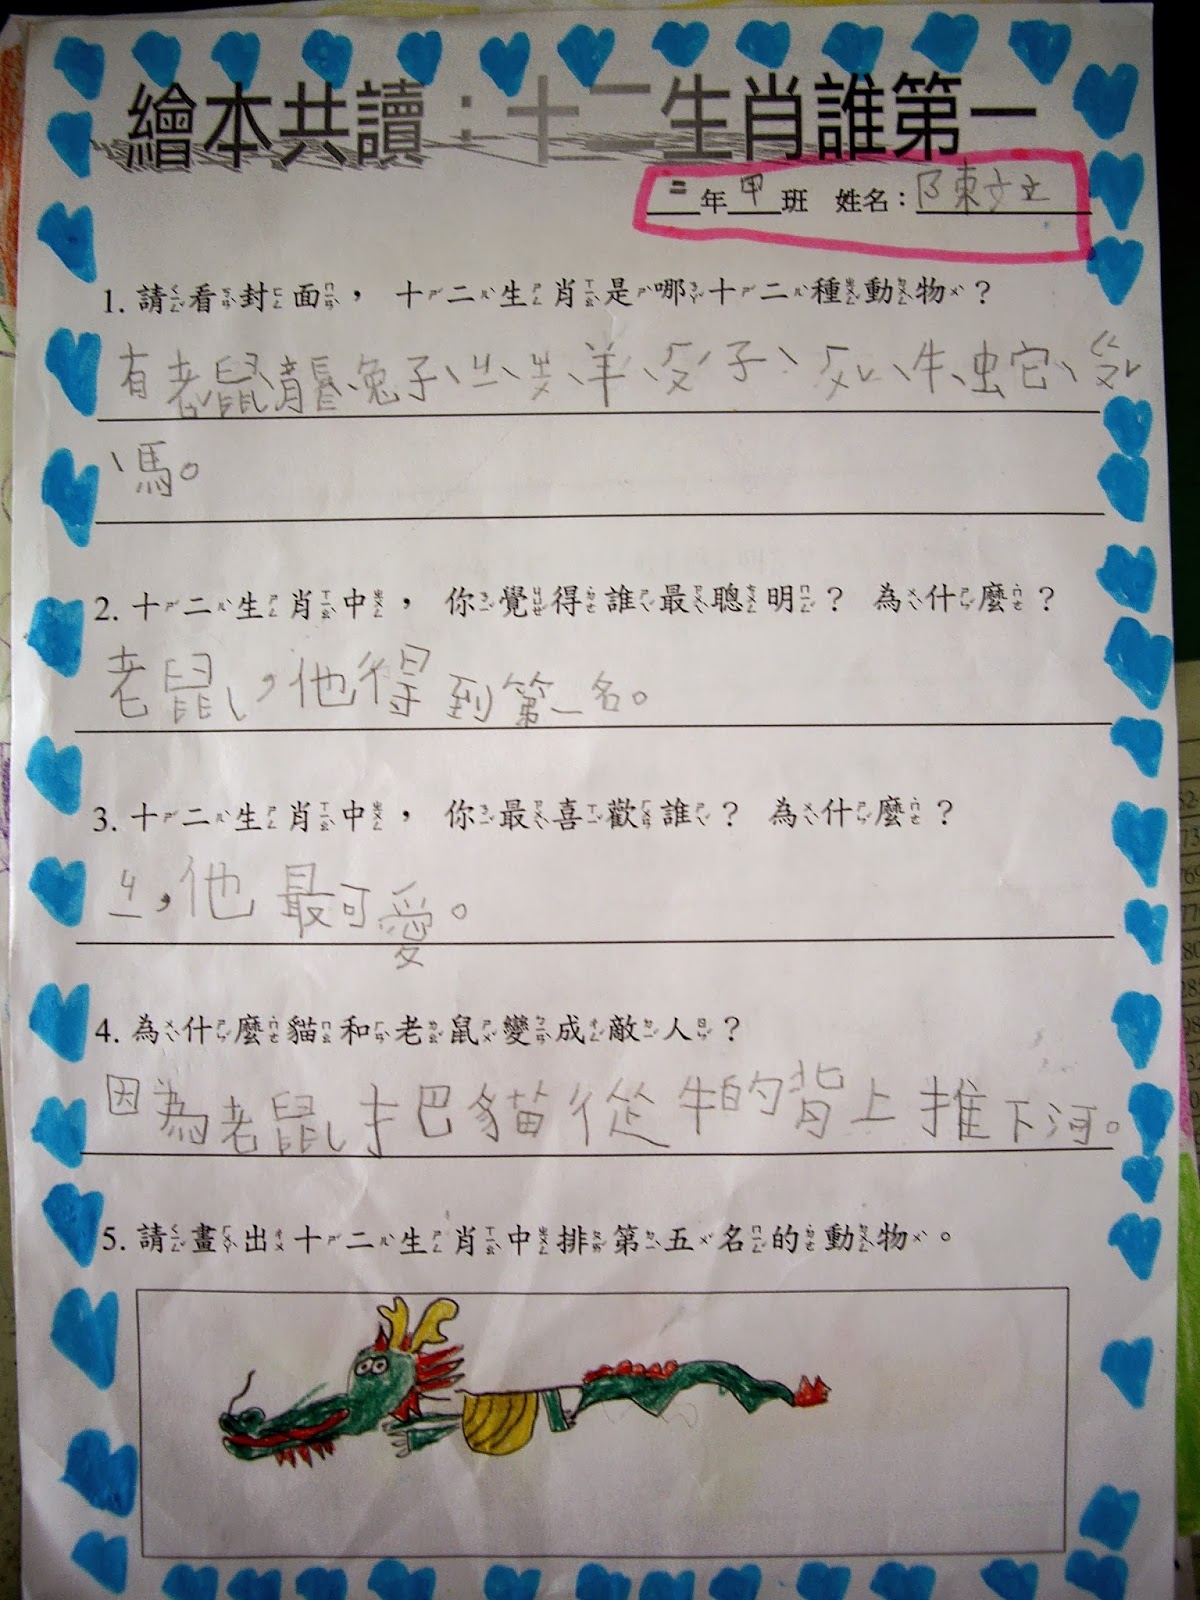 繪本共讀：十二生肖誰第一
二年甲班 姓名：陳
1. 請看封面， 十二生肖是哪十二種動物？
有老鼠、龍、兔子、ㄐㄧ、ㄓㄨ、羊、ㄏㄡˊ子、ㄏㄨˇ、牛、蛇、ㄍㄡˇ
、馬。
2. 十二生肖中， 你覺得誰最聰明？ 為什麼？
老鼠，他得到第一名。
3. 十二生肖中， 你最喜歡誰？ 為什麼？
ㄐㄧ，他最可愛。
4. 為什麼貓和老鼠變成敵人？
因為老鼠才把貓從牛的背上推下河。
5. 請畫出十二生肖中排第五名的動物。